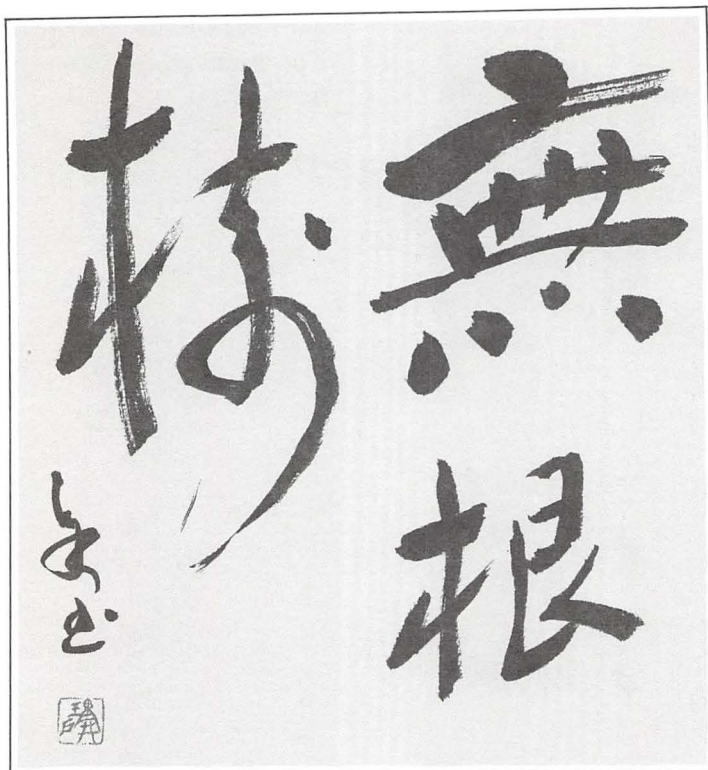 無根
樹